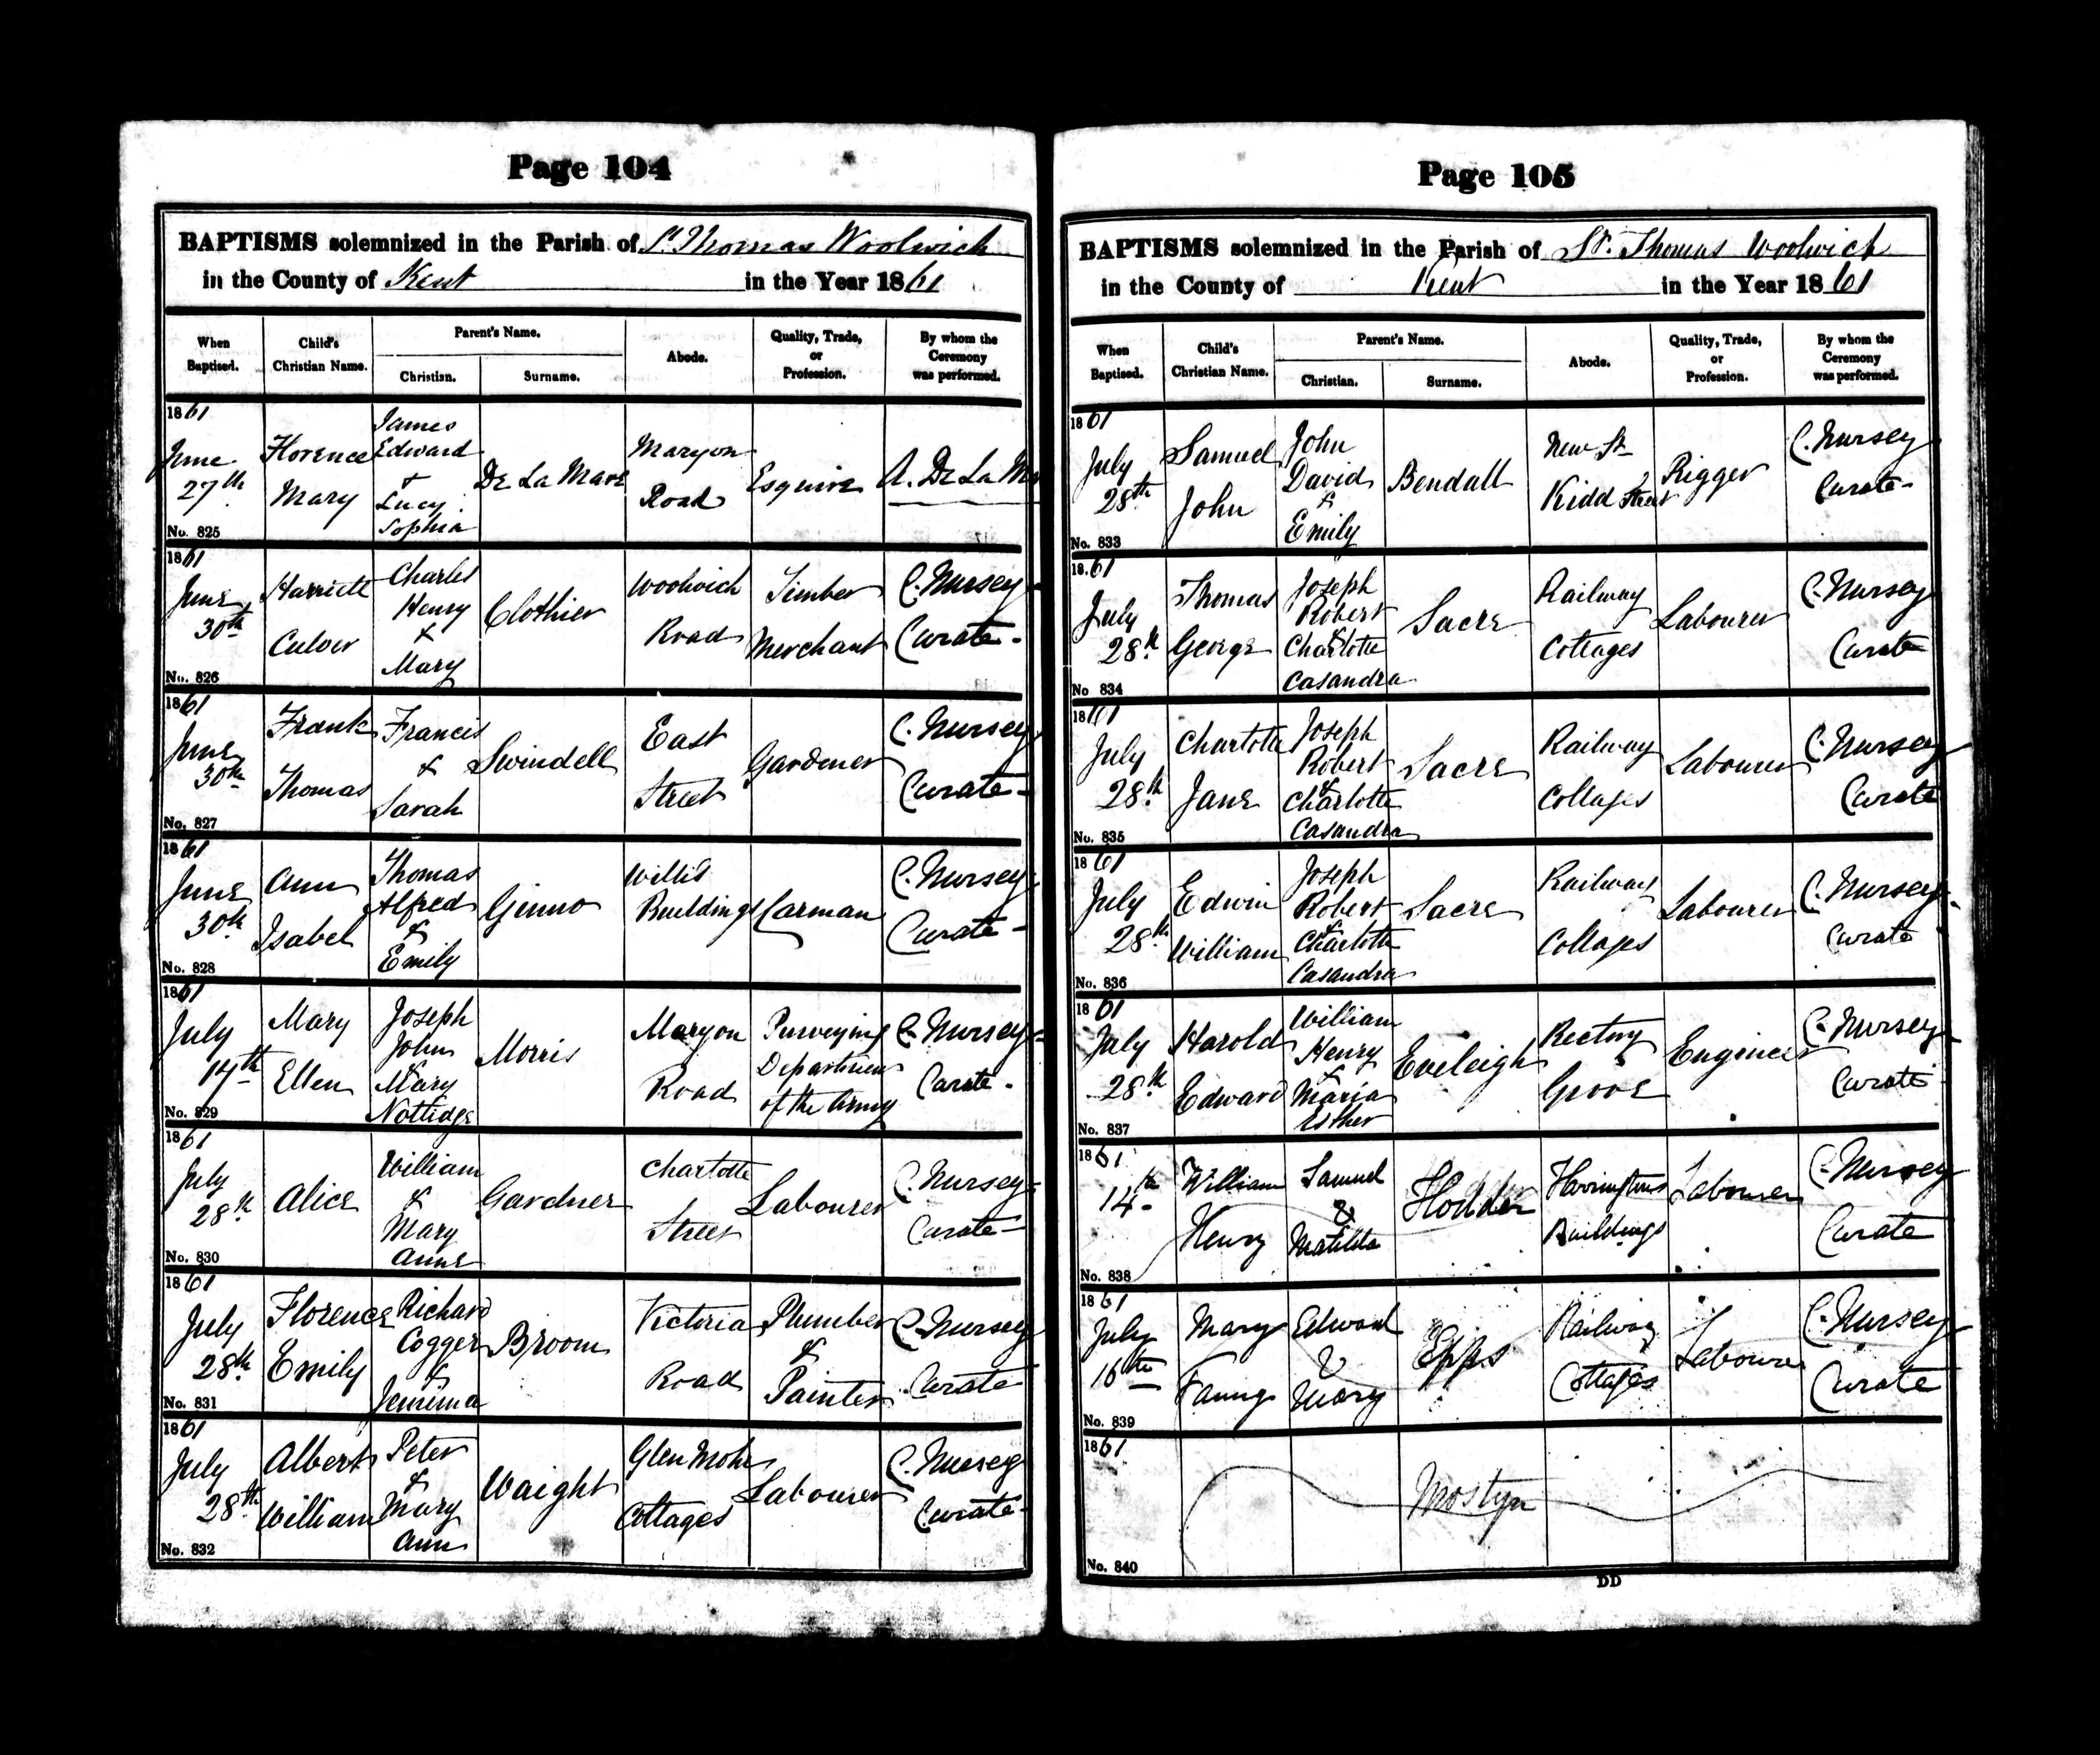 Page 104
BAPTISMS solemnized in the Parish of St Thomas Woolwich
in the County of Kent in the Year 1861
When Baptised. Child's Christian Name. Parent's Name. Christian. Surname. Abode. Quality, Trade, or Profession. By whom the Ceremony was performed.
1861 June 27th No. 825 Florence Mary James Edward & Lucy Sophia De La Mare Maryon Road Esquire A. De La
1861 June 30th No. 826 Harriett Culver Charles Henry & Mary Clothier Woolwich Road Timber Merchant C. Nursey Curate
1861 June 30th No. 827 Frank Thomas Francis & Sarah Swindell East Street Gardener C. Nursey Curate
1861 June 30th No. 828 Ann Isabel Thomas Alfred & Emily Ginno Willis Buildings Carman C. Nursey Curate
1861 July 14th No. 829 Mary Ellen Joseph John & Mary Nottidge Morris Maryon Road Purveying Department of the Army C. Nursey Curate
1861 July 28th No. 830 Alice William & Mary Anne Gardner Charlotte Street Labourer C. Nursey Curate
1861 July 28th No. 831 Florence Emily Richard Cogger & Jemima Broom Victoria Road Plumber & Painter C. Nursey Curate
1861 July 28th No. 832 Albert William Peter & Mary Ann Waight Glen Mohr Cottages Labourer C. Nursey Curate
Page 105
BAPTISMS solemnized in the Parish of St. Thomas Woolwich
in the County of Kent in the Year 1861
When Baptised. Child's Christian Name. Parent's Name. Christian. Surname. Abode. Quality, Trade, or Profession. By whom the Ceremony was performed.
1861 July 28th No. 833 Samuel John John David & Emily Bendall New St Kidd Street Rigger C. Nursey Curate
1861 July 28th No. 834 Thomas George Joseph Robert & Charlotte Casandra Sacre Railway Cottages Labourer C. Nursey Curate
1861 July 28th No. 835 Charlotte Jane Joseph Robert & Charlotte Casandra Sacre Railway Cottages Labourer C. Nursey Curate
1861 July 28th No. 836 Edwin William Joseph Robert & Charlotte Casandra Sacre Railway Cottages Labourer C. Nursey Curate
1861 July 28th No. 837 Harold Edward William Henry & Maria Esther Eveleigh Rectory Grove Engineer C. Nursey Curate
1861 14th No. 838 William Henry Samuel & Matilda Hodder Harringtons Buildings Labourer C. Nursey Curate
1861 July 16th No. 839 Mary Fanny Edward & Mary Epps Railway Cottages Labourer C. Nursey Curate
1861 No. 840 Mostyn
DD